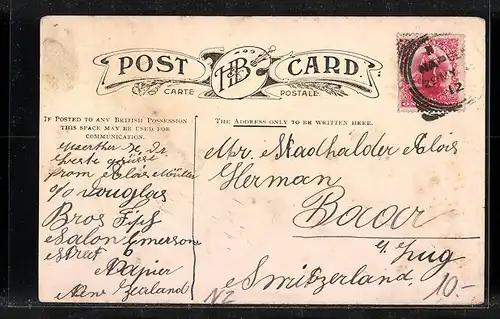 POST HB CARD.
CARTE POSTALE
IF POSTED TO ANY BRITISH POSSESSION
THIS SPACE MAY BE USED FOR
COMMUNICATION.
THE ADDRESS ONLY TO BE WRITTEN HERE.
beste grüsse
from Alois Müller
c/o Douglas
Bros
Salon Emerson
Street
Napier
New Zealand
Mr. Stadhalder Alois
Herman
Baar
Zug
Switzerland.
NZ
10.-
12